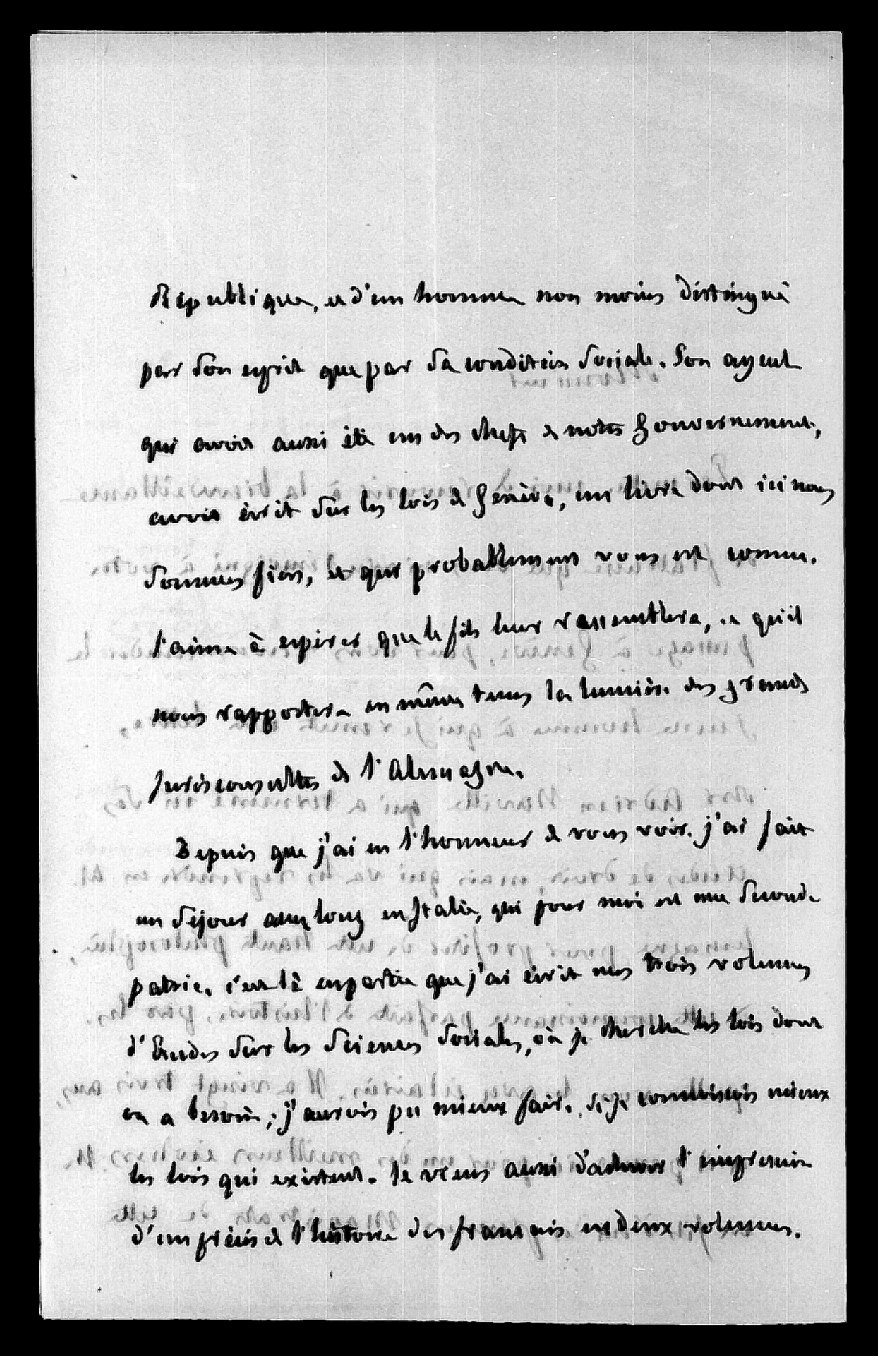 République, et d'un homme non moins distingué
par son esprit que par sa condition sociale. Son ayeul
qui avoit aussi été un des chefs de notre Gouvernement,
avoit écrit sur les lois de Genève, un livre dont ici nous
sommes fiers, et qui probablement vous est connu.
J'aime à espérer que le fils leur ressemblera, et qu'il
nous rapportera en même tems les lumières des grands
Jurisconsultes de l'Allemagne.
Depuis que j'ai eu l'honneur de vous voir. j'ai fait
un séjour assez long en Italie, qui pour moi est une seconde
patrie. c'est là en partie que j'ai écrit mes trois volumes
d'Etudes sur les Sciences Sociales, où je cherche les lois dont
on a besoin; j'aurois pu mieux faire, si je connoissois mieux
les lois qui existent. Je viens aussi d'achever l'impression
d'un précis de l'histoire des français en deux volumes.